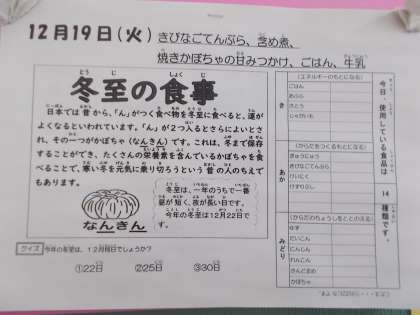 12月19日(火) きびなごてんぷら、含め煮、
焼きかぼちゃの甘みつかけ、ごはん、牛乳
冬至の食事
とうじ しょくじ
日本では昔から、「ん」がつく食べ物を冬至に食べると、運が
よくなるといわれています。「ん」が2つ入るとさらによいとさ
れ、その一つがかぼちゃ(なんきん)です。これは、冬まで保存
することができ、たくさんの栄養素を含んでいるかぼちゃを食
べることで、寒い冬を元気に乗り切ろうという昔の人のちえで
もあります。
なんきん
冬至は、一年のうちで一番
昼が短く、夜が長い日です。
今年の冬至は12月22日で
す。
クイズ 今年の冬至は、12月何日でしょうか?
①22日 ②25日 ③30日
今日、使用している食品は 14 種類です。
き
(エネルギーのもとになる)
ごはん
あぶら
さとう
じゃがいも
あか
(からだをつくるもとになる)
ぎゅうにゅう
きびなご
みどり
(からだのちょうしをととのえる)
ゆず
だいこん
にんじん
れんこん
さんどまめ
かぼちゃ